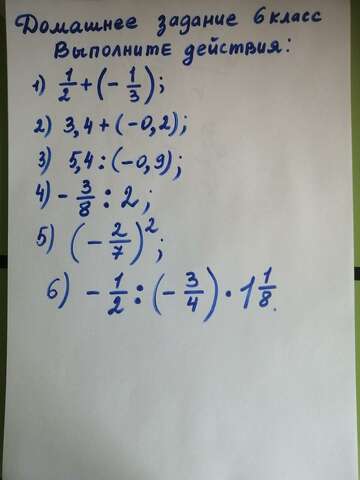 Домашнее задание 6 класс
Выполните действия:
1) 1/2 + (- 1/3);
2) 3,4 + (-0,2);
3) 5,4 : (-0,9);
4) - 3/8 : 2;
5) (- 2/7)²;
6) - 1/2 : (- 3/4) · 1 1/8.